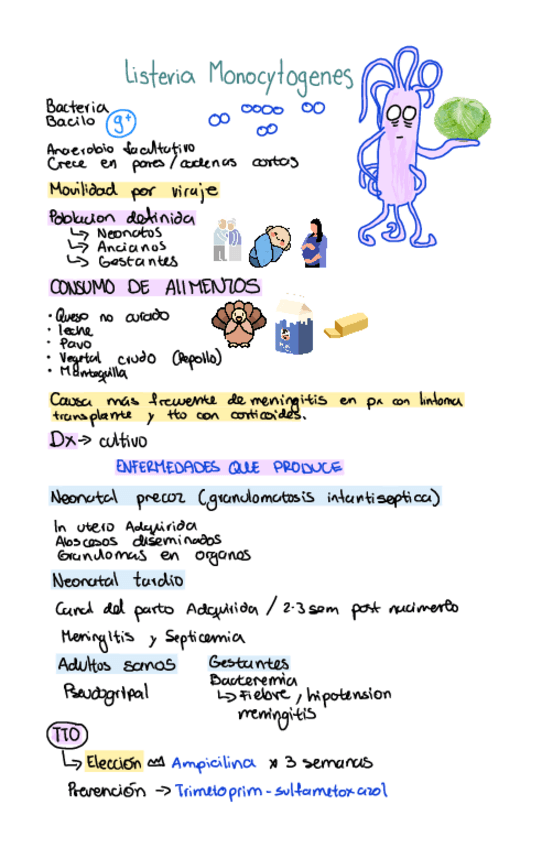 Listeria Monocytogenes
Bacteria
Bacilo g+
Anaerobio facultativo
Crece en pares / cadenas cortas
Movilidad por viraje
Poblacion definida
↳ Neonatos
↳ Ancianos
↳ Gestantes
CONSUMO DE AlIMENTOS
• Queso no curado
• leche
• Pavo
• Vegetal crudo (Repollo)
• Mantequilla
Causa más frecuente de meningitis en px con linfoma
transplante y tto con corticoides.
Dx → cultivo
ENFERMEDADES QUE PRODUCE
Neonatal precoz (granulomatosis infantiseptica)
In utero Adquirida
Abscesos diseminados
Granulomas en organos
Neonatal tardio
Canal del parto Adquirida / 2-3 sem post nacimiento
Meningitis y Septicemia
Adultos sanos
Pseudogripal
Gestantes
Bacteremia
↳ Fiebre, hipotension
meningitis
TTO
↳ Elección Ampicilina x 3 semanas
Prevención → Trimetoprim - sulfametoxazol